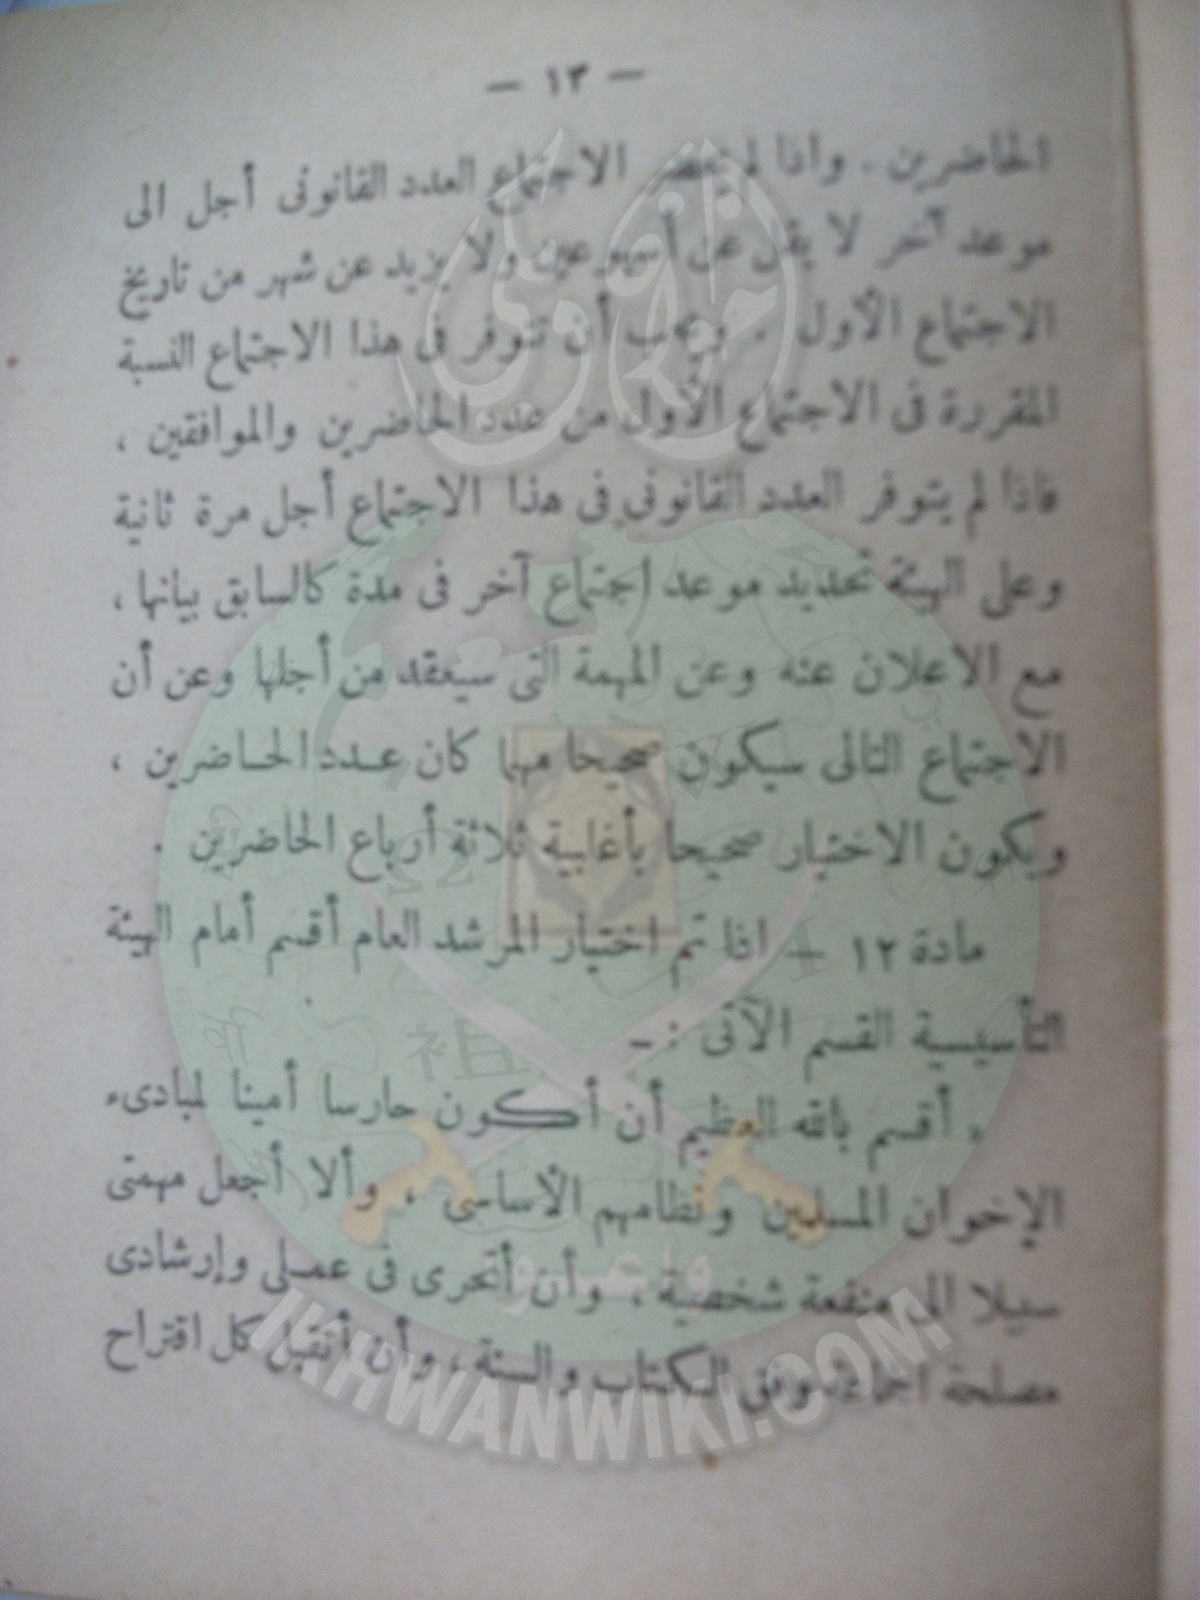 — ١٣ —
الحاضرين . واذا لم يحضر الاجتماع العدد القانونى أجل الى
موعد آخر لا يقل عن أسبوعين ولا يزيد عن شهر من تاريخ
الاجتماع الأول . ويجب أن تتوفر فى هذا الاجتماع النسبة
المقررة فى الاجتماع الأول من عدد الحاضرين والموافقين ،
فاذا لم يتوفر العدد القانونى فى هذا الاجتماع أجل مرة ثانية
وعلى الهيئة تحديد موعد اجتماع آخر فى مدة كالسابق بيانها ،
مع الاعلان عنه وعن المهمة التى سيعقد من أجلها وعن أن
الاجتماع التالى سيكون صحيحا مهما كان عدد الحاضرين ،
ويكون الاختيار صحيحا بأغلبية ثلاثة أرباع الحاضرين .
مادة ١٢ — اذا تم اختيار المرشد العام أقسم أمام الهيئة
التأسيسية القسم الآتى : -
« أقسم بالله العظيم أن أكون حارسا أمينا لمبادىء
الإخوان المسلمين ونظامهم الأساسى ، وألا أجعل مهمتى
سبيلا الى منفعة شخصية ، وأن أتحرى فى عملى وإرشادى
مصلحة الجماعة وفق الكتاب والسنة ، وأن أتقبل كل اقتراح
إخوان ويكى
祖
وأعدوا
IKHWANWIKI.COM